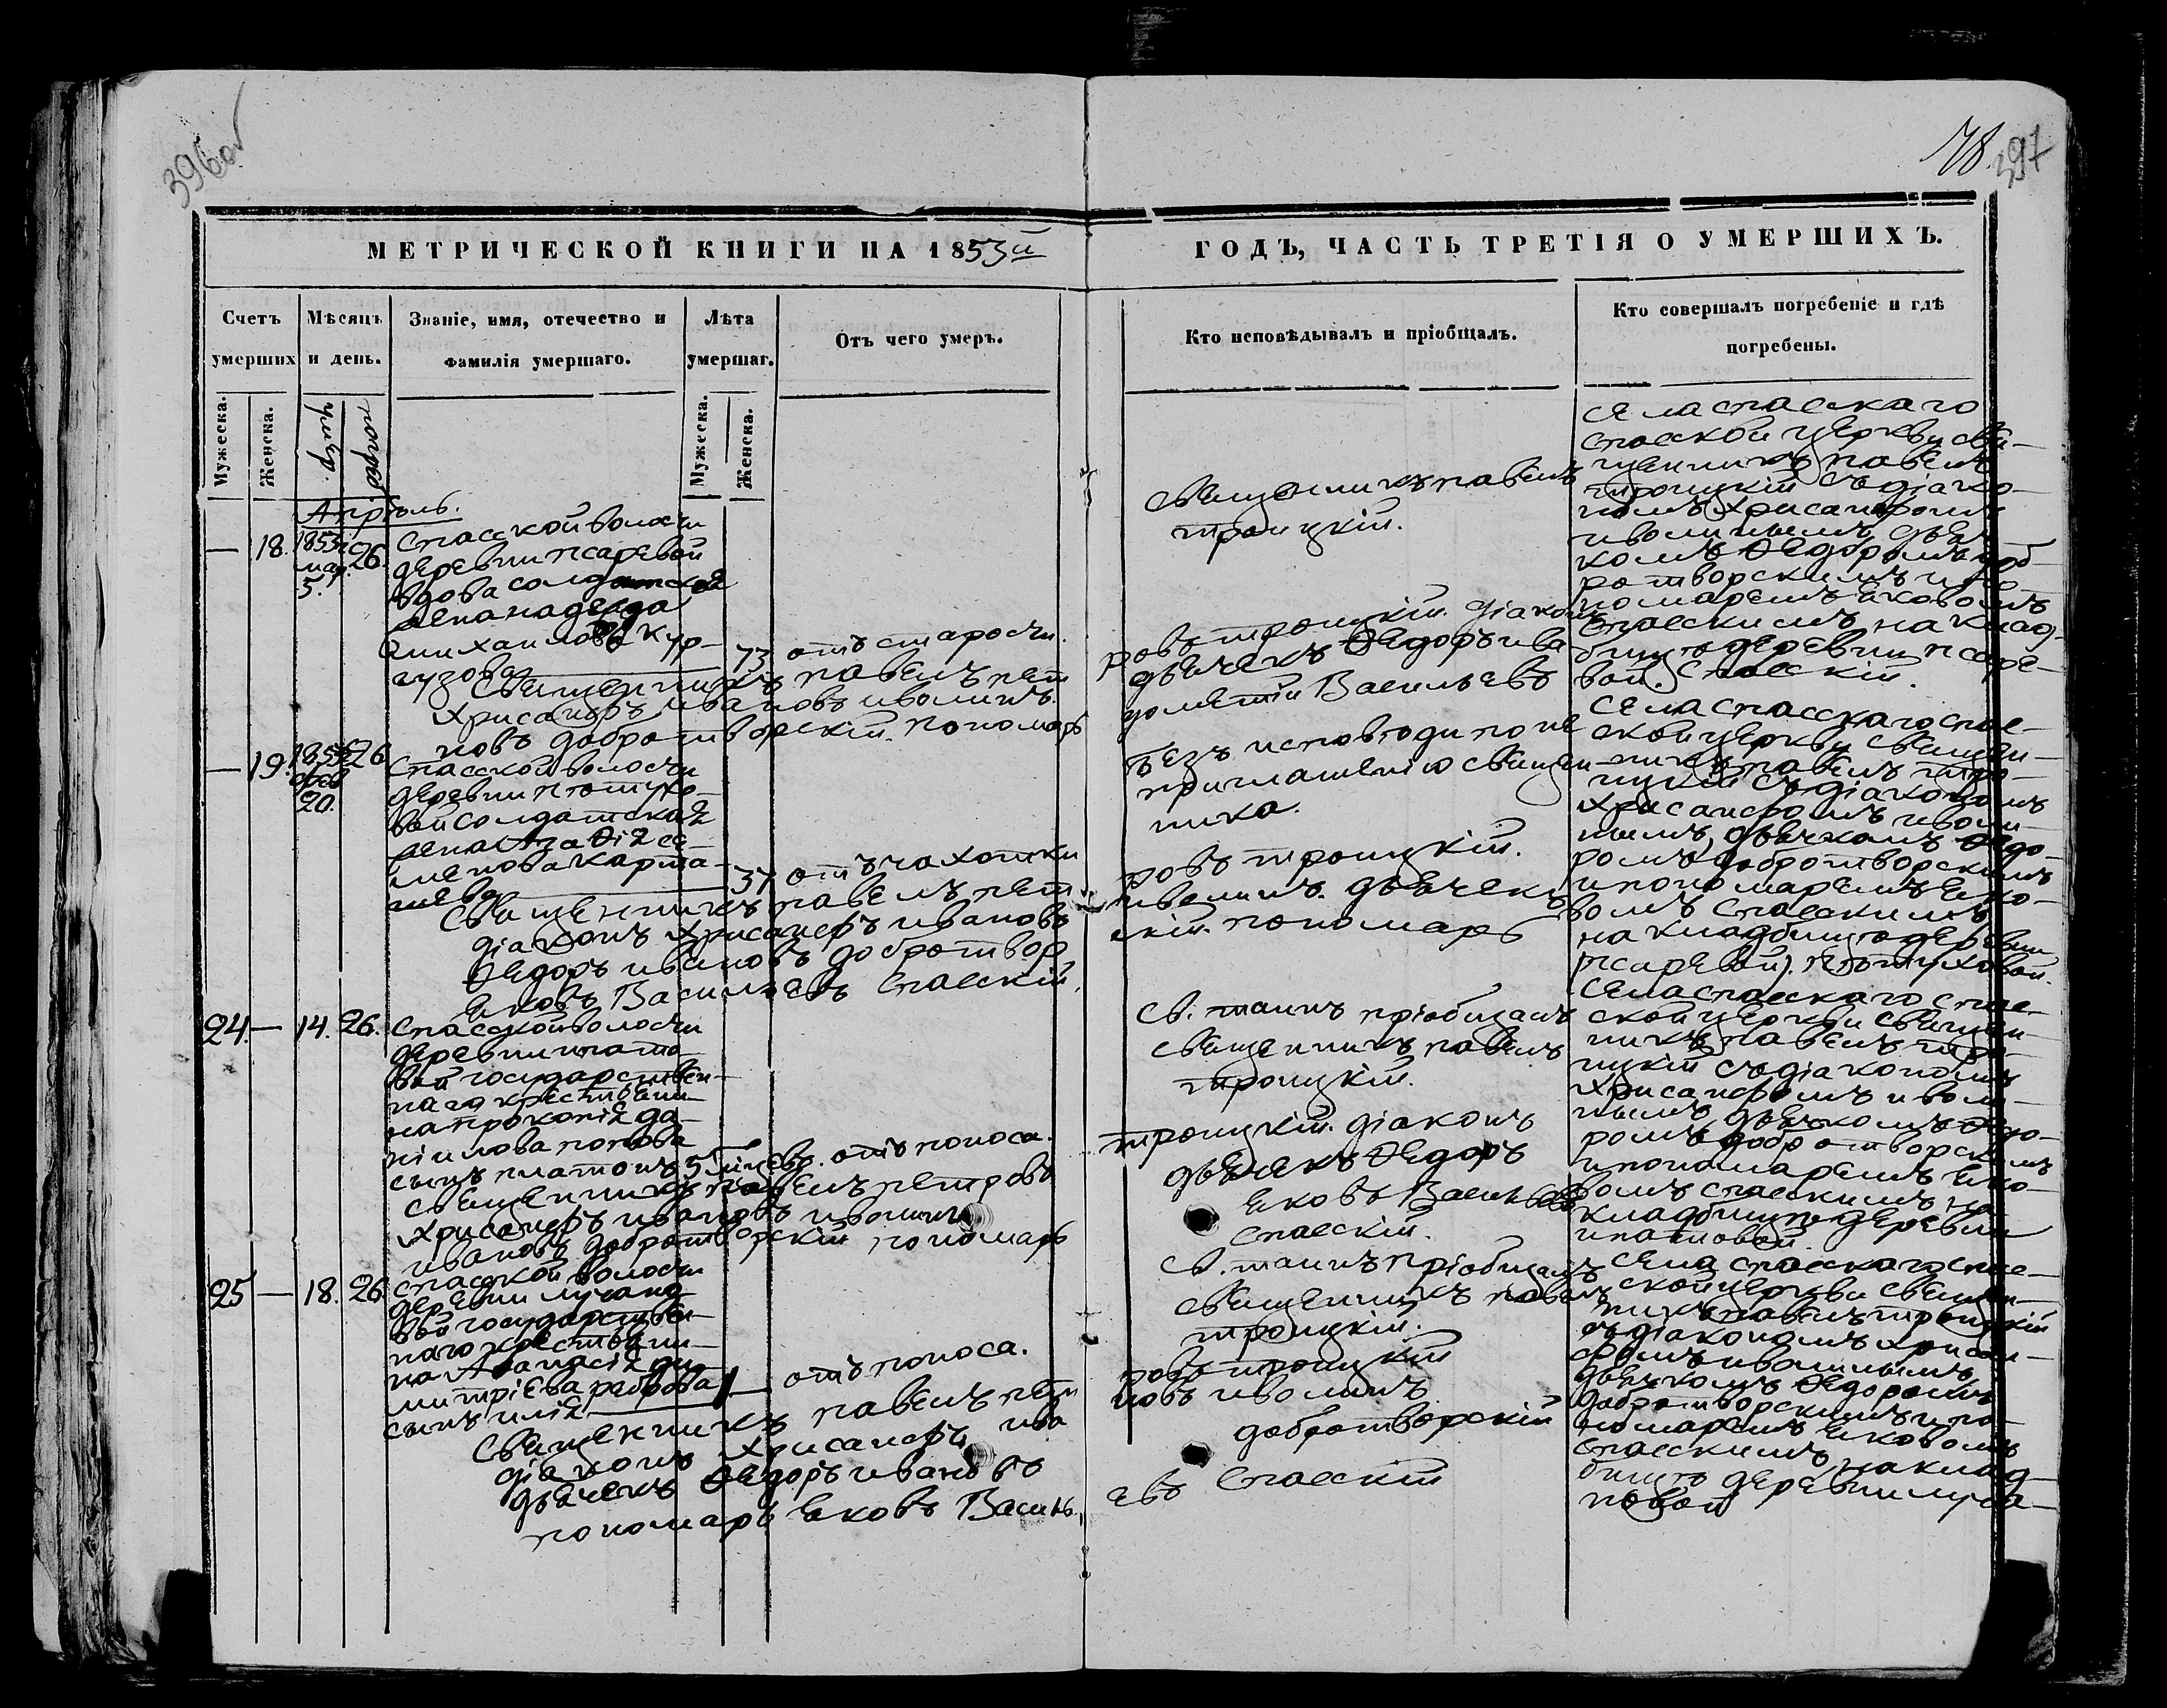 396об
78. 397
МЕТРИЧЕСКОЙ КНИГИ НА 1853й
ГОДЪ, ЧАСТЬ ТРЕТІЯ О УМЕРШИХЪ.
Счетъ умерших
Мѣсяцъ и день.
Званіе, имя, отечество и фамилія умершаго.
Лѣта умершаг.
Отъ чего умеръ.
Кто исповѣдывалъ и пріобщалъ.
Кто совершалъ погребеніе и гдѣ погребены.
Мужеска.
Женска.
умер.
Мужеска.
Женска.
Апрѣль.
— 18. 1853 мар. 5. 26.
Спасской волости
деревни псаревой
вдова солдатская
жена надежда
михаилова кур-
гузова 73
отъ старости.
Священникъ павелъ
троицкій.
села спасскаго
спасской церкви свя-
щенникъ павелъ
троицкій съ діако-
номъ хрисанфомъ
иволинымъ, дьяч-
комъ Ѳедоромъ доб-
ротворскимъ и по-
номаремъ яковомъ
спасскимъ, на клад-
бищѣ деревни псаре-
вой.
Священникъ павелъ пет
ровъ троицкій. діаконъ
хрисанфъ ивановъ иволинъ.
дьячекъ Ѳедоръ ива
новъ добротворскій. пономарь
Васильевъ
Спасскій.
— 19. 1853 фев 20. 26
Спасской волости
деревни пѣтухо-
вой солдатская
жена Агаѳія се-
менова карта-
шева 37
отъ чахотки
безъ исповѣди по не
приглашенію священ-
ника.
села спасскаго спас-
ской церкви священ-
никъ павелъ трои-
цкій съ діакономъ
хрисанфомъ иволи-
нымъ, дьячкомъ Ѳедо-
ромъ добротворскимъ
и пономаремъ яко-
вомъ спасскимъ
на кладбищѣ деревни
псаревой. пѣтуховой.
Священникъ павелъ пет
ровъ троицкій.
діаконъ хрисанфъ ивановъ
иволинъ. дьячекъ
Ѳедоръ ивановъ добротвор
скій. пономарь
яковъ Васильевъ Спасскій.
24. — 14. 26.
Спасской волости
деревни ипато-
вой государствен-
наго крестьяни-
на прокопія да-
ніилова попова
сынъ платонъ 5 мѣсяцевъ.
отъ поноса.
св. таинъ пріобщалъ
священникъ павелъ
троицкій.
села спасскаго спас-
ской церкви священ-
никъ павелъ трои-
цкій съ діакономъ
хрисанфомъ иволи-
нымъ, дьячкомъ Ѳедо-
ромъ добротворскимъ
и пономаремъ яко-
вомъ спасскимъ на
кладбищѣ деревни
ипатовой.
священникъ павелъ петровъ
троицкій. діаконъ
хрисанфъ ивановъ иволинъ
дьячекъ Ѳедоръ
ивановъ добротворскій пономарь
яковъ Васильевъ
спасскій.
25 — 18. 26
спасской волости
деревни
вой государствен-
наго крестьяни-
на Аѳанасія ди-
митріева реброва
сынъ илія 1 —
отъ поноса.
св. таинъ пріобщалъ
священникъ павелъ
троицкій.
села спасскаго спас-
ской церкви священ-
никъ павелъ троицкій
съ діакономъ хрисан-
фомъ иволинымъ,
дьячкомъ Ѳедоромъ
добротворскимъ и по-
номаремъ яковомъ
спасскимъ, на клад-
бищѣ деревни
новой
Священникъ павелъ пет
ровъ троицкій
діаконъ хрисанфъ ива
новъ иволинъ
дьячекъ Ѳедоръ ивановъ
добротворскій
пономарь яковъ Василь
евъ Спасскій